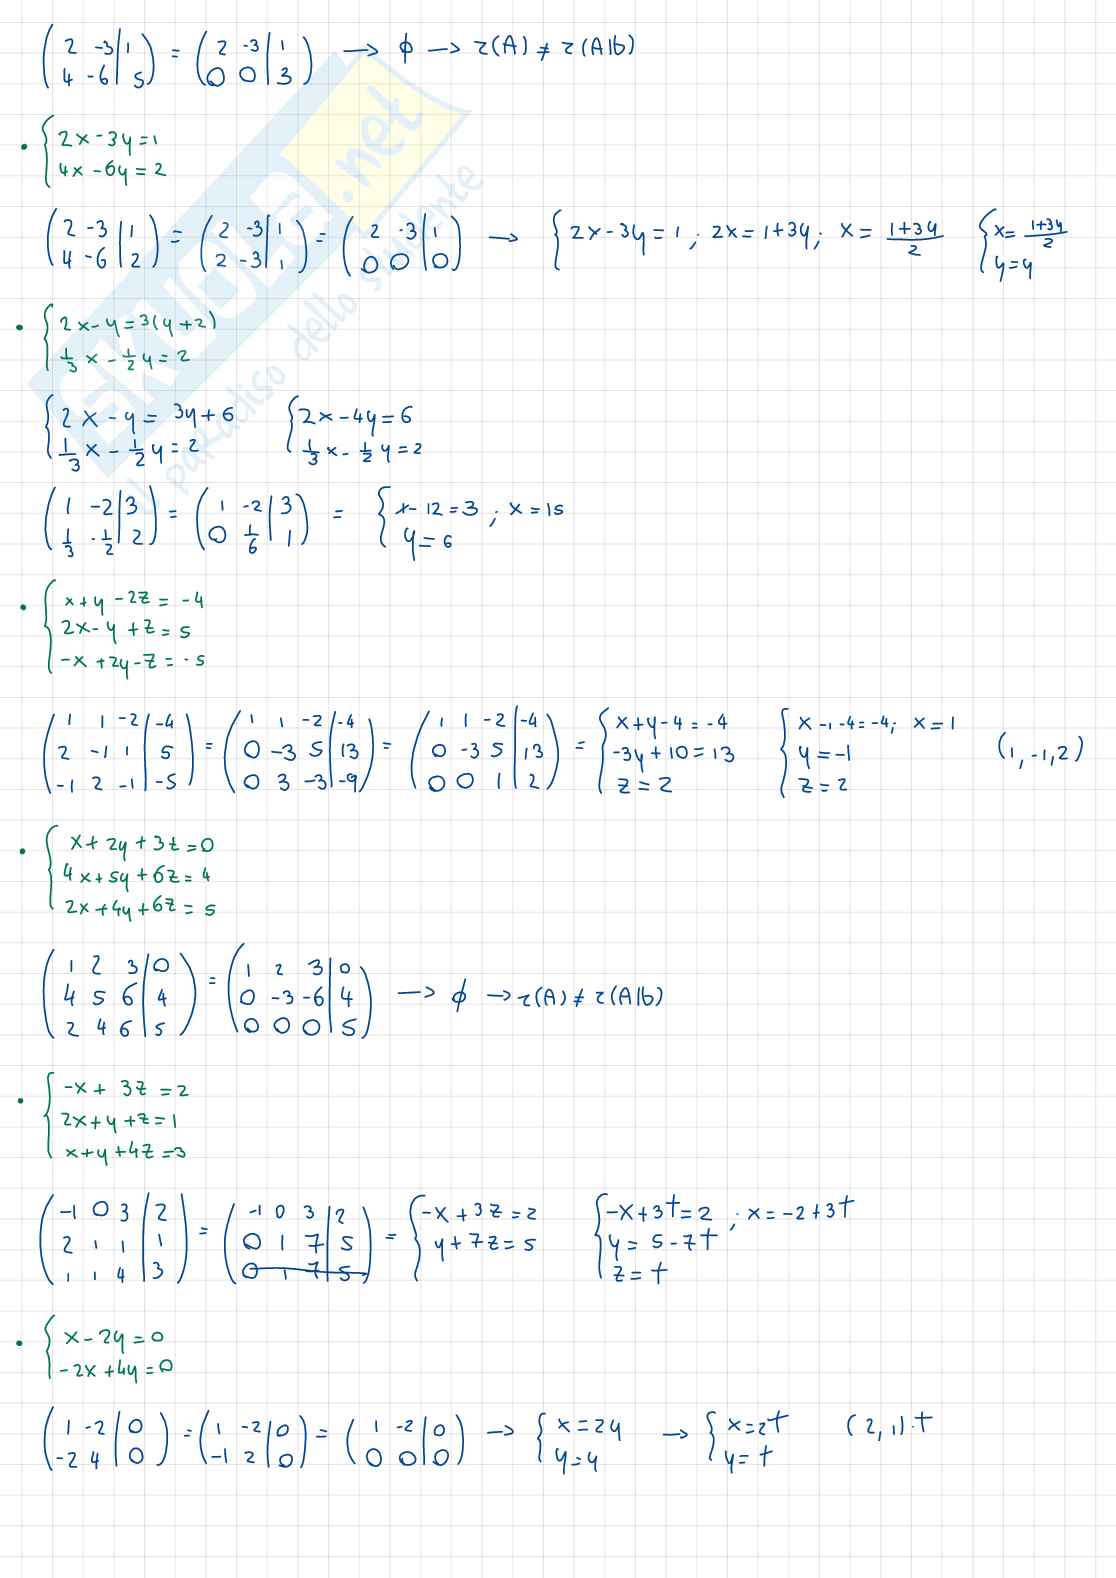 (2 -3 | 1 ; 4 -6 | 5) = (2 -3 | 1 ; 0 0 | 3) → ϕ → r(A) ≠ r(A|b)
• { 2x-3y=1
4x-6y=2
(2 -3 | 1 ; 4 -6 | 2) = (2 -3 | 1 ; 2 -3 | 1) = (2 -3 | 1 ; 0 0 | 0) → { 2x-3y=1 ; 2x=1+3y ; x=(1+3y)/2 { x=(1+3y)/2 y=y
• { 2x-y=3(y+2)
1/3 x - 1/2 y=2
{ 2x-y=3y+6 { 2x-4y=6
1/3 x - 1/2 y=2 1/3 x - 1/2 y=2
(1 -2 | 3 ; 1/3 -1/2 | 2) = (1 -2 | 3 ; 0 1/6 | 1) = { x-12=3 ; x=15 y=6
• { x+y-2z=-4
2x-y+z=5
-x+2y-z=-5
(1 1 -2 | -4 ; 2 -1 1 | 5 ; -1 2 -1 | -5) = (1 1 -2 | -4 ; 0 -3 5 | 13 ; 0 3 -3 | -9) = (1 1 -2 | -4 ; 0 -3 5 | 13 ; 0 0 1 | 2) = { x+y-4=-4 -3y+10=13 z=2 { x-1-4=-4; x=1 y=-1 z=2 (1,-1,2)
• { x+2y+3z=0
4x+5y+6z=4
2x+4y+6z=5
(1 2 3 | 0 ; 4 5 6 | 4 ; 2 4 6 | 5) = (1 2 3 | 0 ; 0 -3 -6 | 4 ; 0 0 0 | 5) → ϕ → r(A) ≠ r(A|b)
• { -x+3z=2
2x+y+z=1
x+y+4z=3
(-1 0 3 | 2 ; 2 1 1 | 1 ; 1 1 4 | 3) = (-1 0 3 | 2 ; 0 1 7 | 5 ; 0 1 7 | 5) = { -x+3z=2 y+7z=5 { -x+3t=2 ; x=-2+3t y=5-7t z=t
• { x-2y=0
-2x+4y=0
(1 -2 | 0 ; -2 4 | 0) = (1 -2 | 0 ; -1 2 | 0) = (1 -2 | 0 ; 0 0 | 0) → { x=2y y=y → { x=2t y=t (2,1)·t
SKUOLA.net
il paradiso dello studente